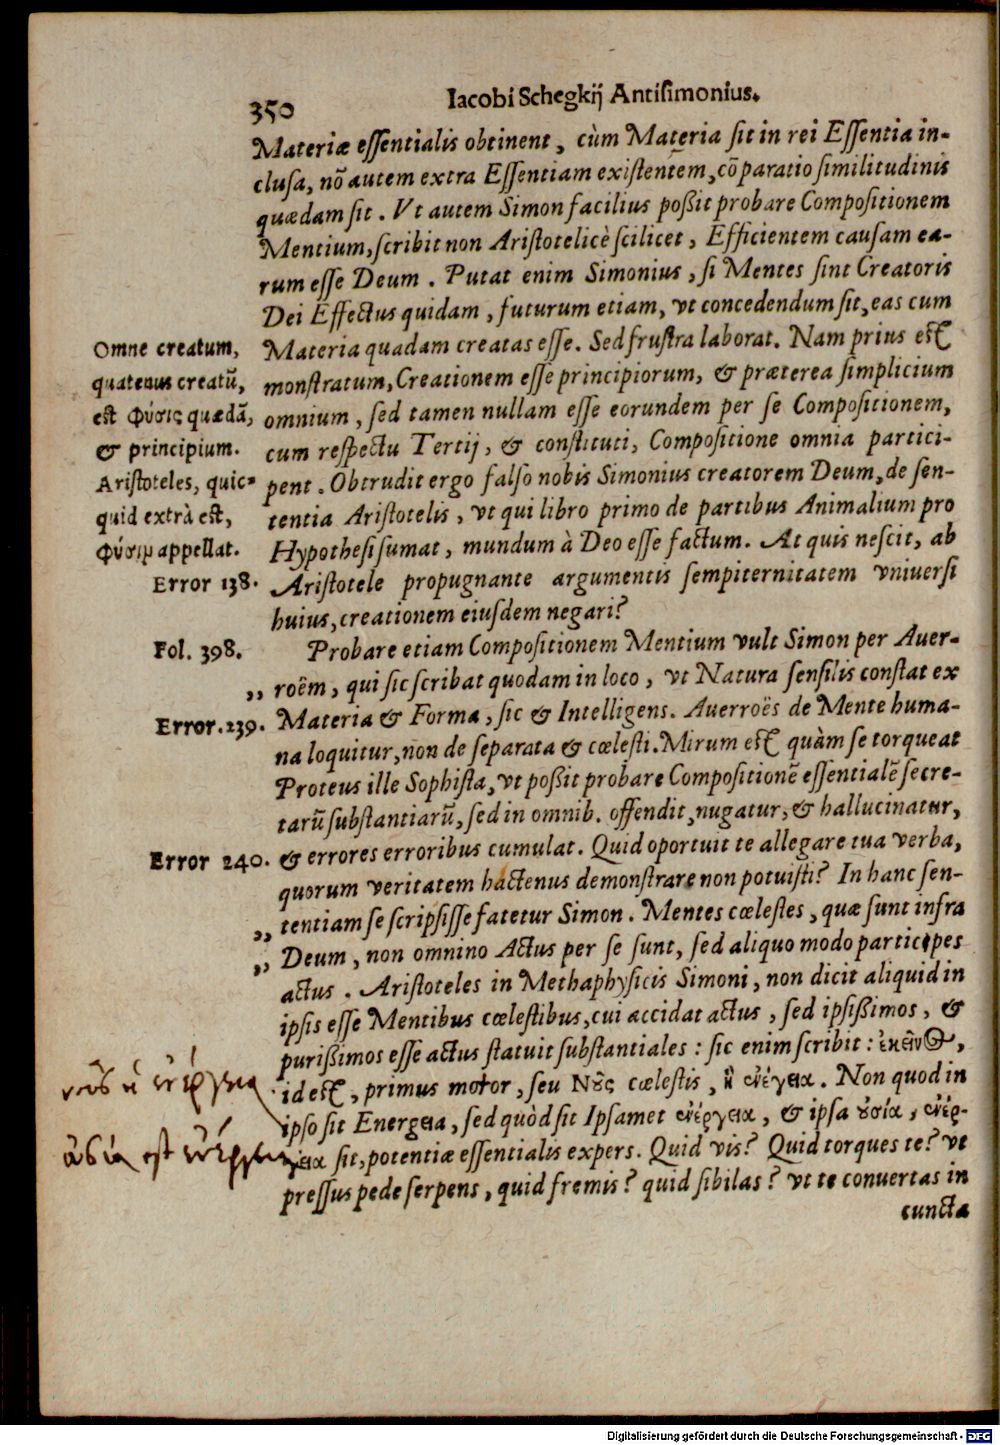 350
Iacobi Schegkij Antisimonius.
Materiæ essentialis obtinent, cùm Materia sit in rei Essentia in-
clusa, nō autem extra Essentiam existentem, cōparatio similitudinis
quædam sit. Vt autem Simon facilius poßit probare Compositionem
Mentium, scribit non Aristotelicè scilicet, Efficientem causam ea-
rum esse Deum. Putat enim Simonius, si Mentes sint Creatoris
Dei Effectus quidam, futurum etiam, vt concedendum sit, eas cum
Materia quadam creatas esse. Sed frustra laborat. Nam prius est
monstratum, Creationem esse principiorum, & præterea simplicium
omnium, sed tamen nullam esse eorundem per se Compositionem,
cum respectu Tertij, & constituti, Compositione omnia partici-
pent. Obtrudit ergo falso nobis Simonius creatorem Deum, de sen-
tentia Aristotelis, vt qui libro primo de partibus Animalium pro
Hypothesi sumat, mundum à Deo esse factum. At quis nescit, ab
Aristotele propugnante argumentis sempiternitatem vniuersi
huius, creationem eiusdem negari?
Omne creatum,
quatenus creatū,
est Φύσις quædā,
& principium.
Aristoteles, quic-
quid extrà est,
Φύσιμ appellat.
Error 138.
Fol. 398.
Probare etiam Compositionem Mentium vult Simon per Auer-
„ roëm, qui sic scribat quodam in loco, vt Natura sensilis constat ex
Error. 239. Materia & Forma, sic & Intelligens. Auerroës de Mente huma-
na loquitur, non de separata & cœlesti. Mirum est quàm se torqueat
Proteus ille Sophista, vt poßit probare Compositionē essentialē secre-
tarū substantiarū, sed in omnib. offendit, nugatur, & hallucinatur,
Error 240. & errores erroribus cumulat. Quid oportuit te allegare tua verba,
quorum veritatem hactenus demonstrare non potuisti? In hanc sen-
„ tentiam se scripsisse fatetur Simon. Mentes cœlestes, quæ sunt infra
„ Deum, non omnino Actus per se sunt, sed aliquo modo participes
actus. Aristoteles in Methaphysicis Simoni, non dicit aliquid in
ipsis esse Mentibus cœlestibus, cui accidat actus, sed ipsißimos, &
purißimos esse actus statuit substantiales: sic enim scribit: ἐκεῖνος,
id est, primus motor, seu Νοῦς cœlestis, ἢ ἐνέργεια. Non quod in
ipso sit Energeia, sed quòd sit Ipsamet ἐνέργεια, & ipsa οὐσία, ἐνέρ-
γεια sit, potentiæ essentialis expers. Quid vis? Quid torques te? vt
pressus pede serpens, quid fremis? quid sibilas? vt te conuertas in
cuncta
νοῦς ἡ ἐνέργεια
οὐσία est ἐνέργεια
Digitalisierung gefördert durch die Deutsche Forschungsgemeinschaft - DFG